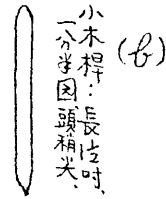 (b)
小木桿:長位吋、
一分半因、頭稍尖、